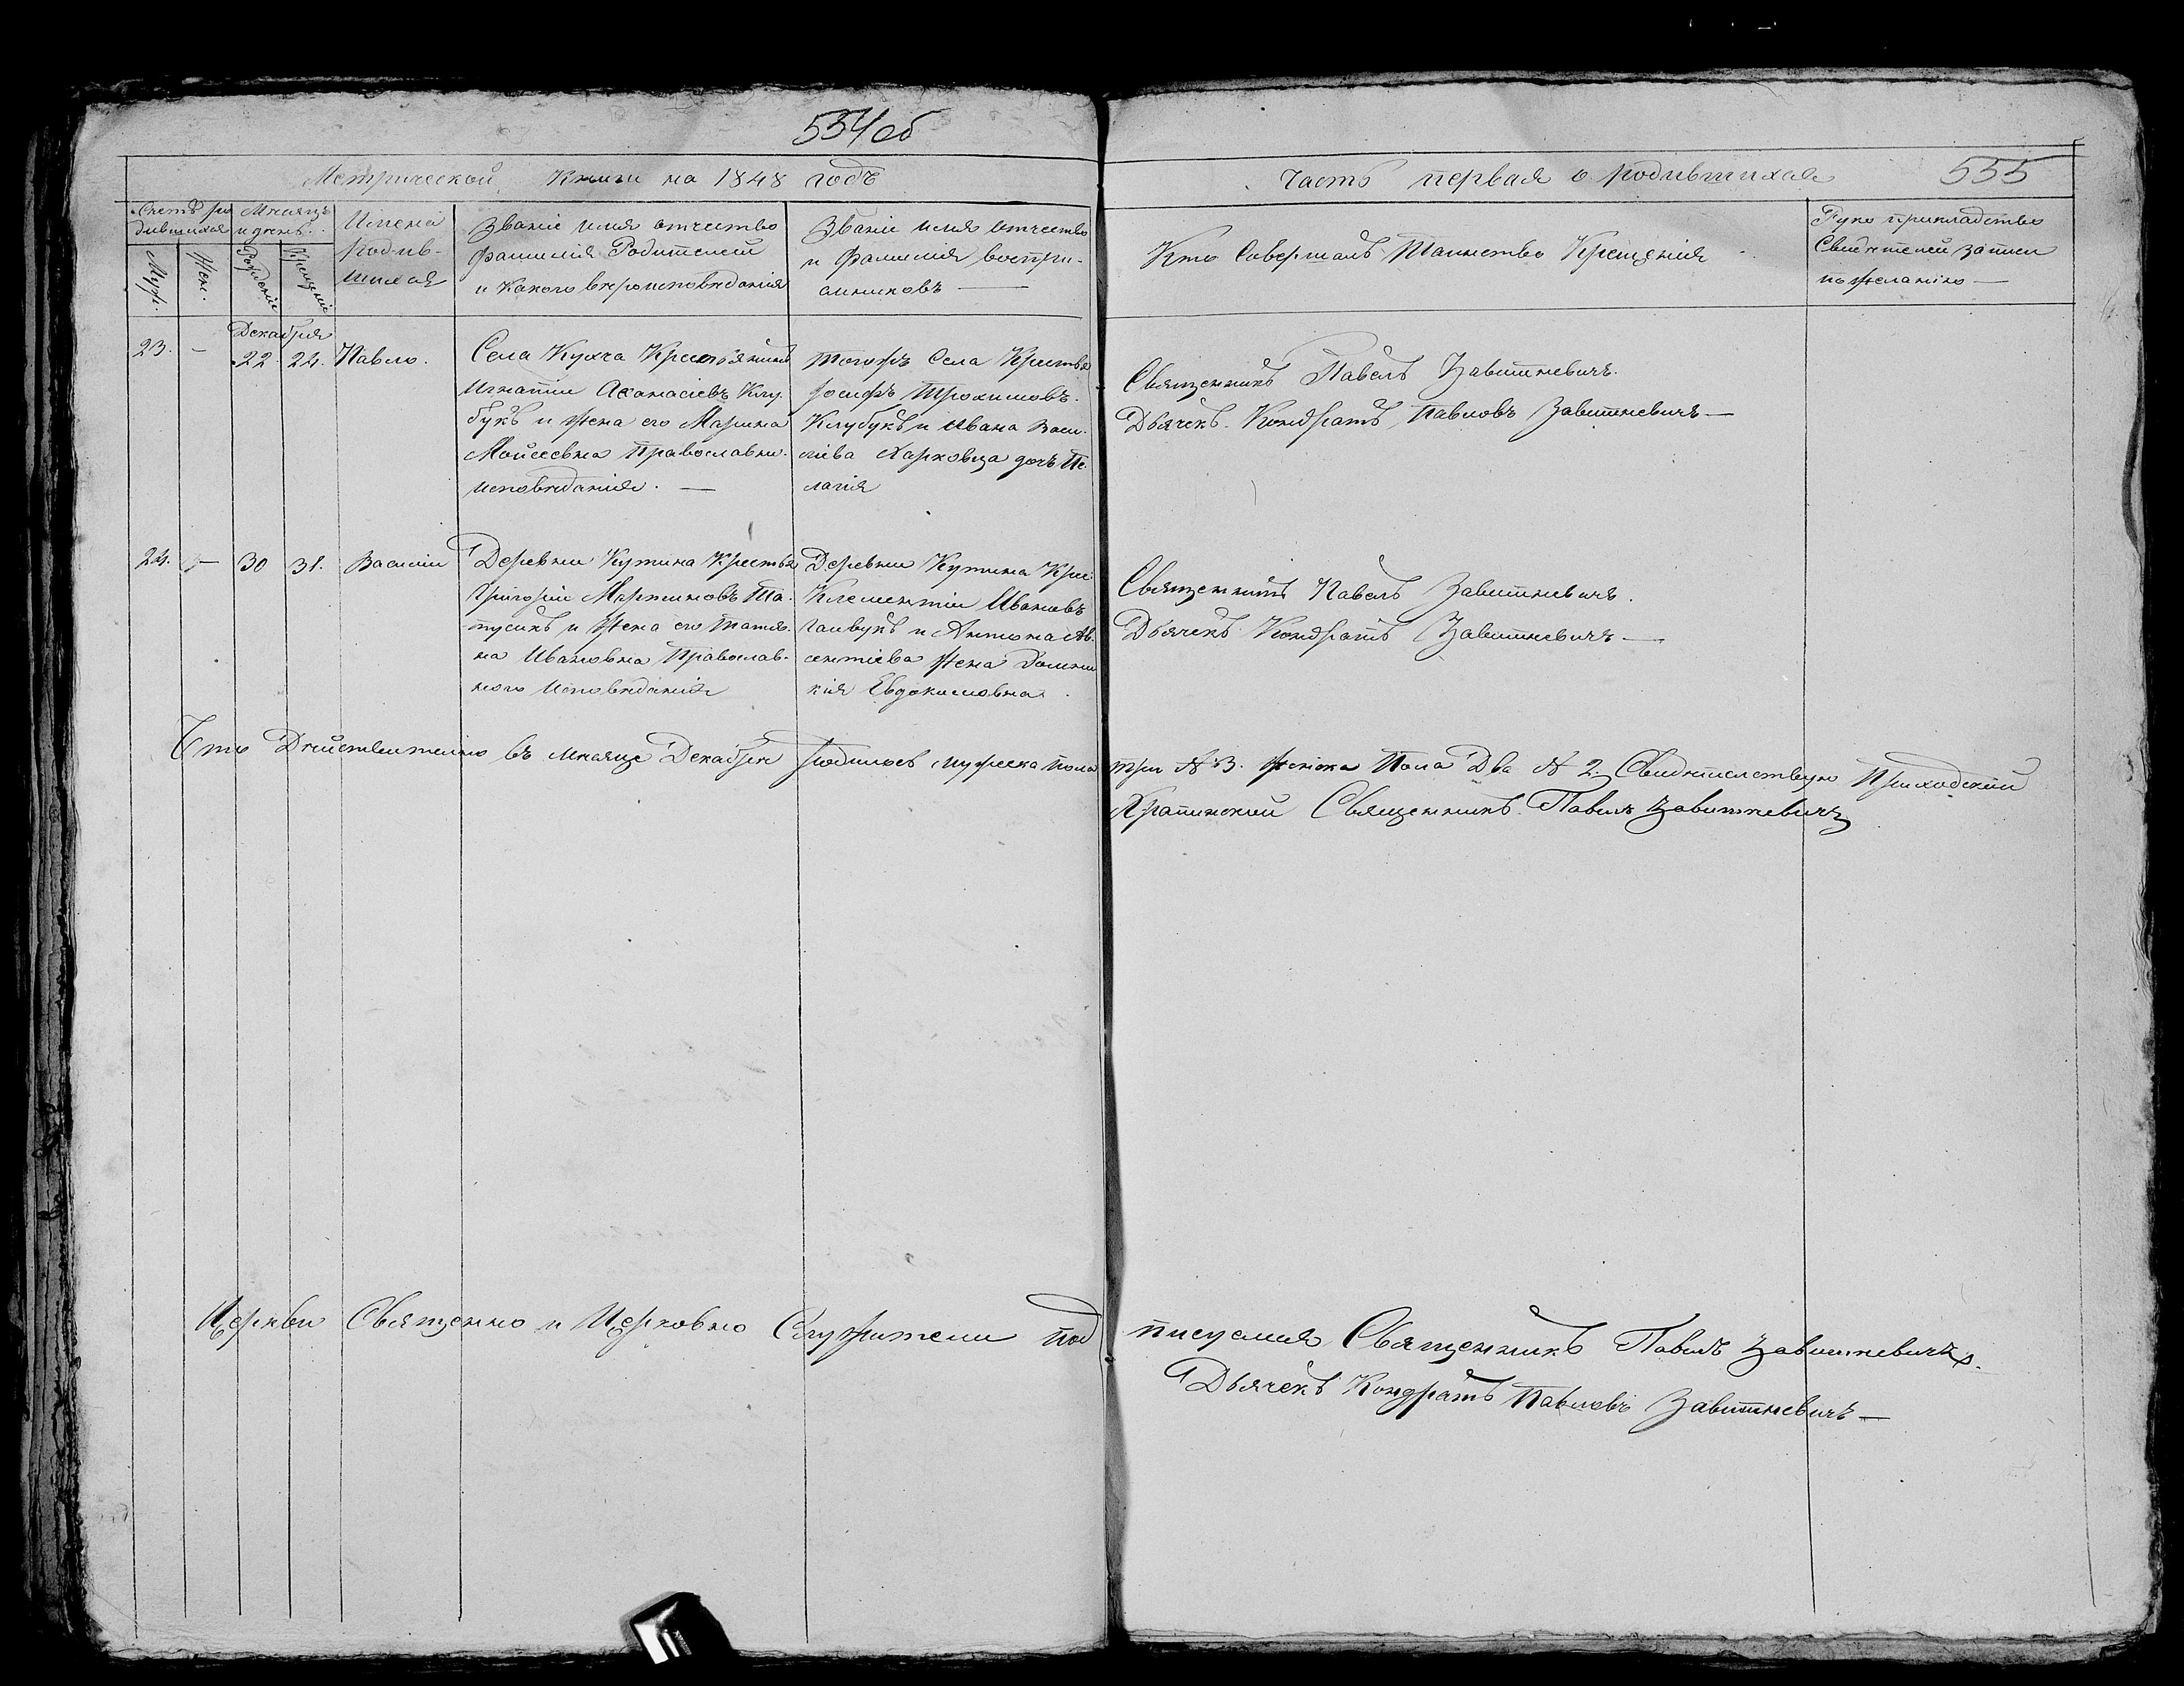 534 об
Метрической Книги на 1848 годъ
Часть первая о родившихся
555
Счетъ ро
дившихся
Муж.
Жен.
Мѣсяцъ
и день.
Рожденіе
Крещеніе
Имена
Родив-
шихся
Званіе имя отчество
фамилія Родителей
и какого вѣроисповѣданія
Званіе имя отчество
и фамилія воспрі-
емниковъ —
Кто Совершалъ Таинство Крещенія
Рукоприкладство
Свидѣтелей записи
по желанію —
Декабря
23. - 22 24. Павло.
Села Кухча Крестьянинъ
Игнатій Аѳанасіевъ Клу-
букъ и жена его Марина
Моисеевна Православн.
исповѣданія. —
тогожъ Села Крестья
Іосифъ Трохимовъ
Клубукъ и Ивана Васи-
ліева Харковца дочь Пе-
лагія
Священникъ Павелъ Завитневичъ.
Дьячекъ Кондратъ Павловъ Завитневичъ —
24. - 30 31. Василій
Деревни Кутина Крестья
Григорій Мартиновъ
и жена его Татія-
на Ивановна Православ-
ного Исповѣданія
Деревни Кутина Кре
Климентій Ивановъ
и Антона Ав-
сентіева жена Домни
кія Евдокимовна.
Священникъ Павелъ Завитневичъ.
Дьячекъ Кондратъ Завитневичъ —
Что Дѣйствительно въ мѣсяце Декабрѣ родилось мужеска пола три № 3. женска Пола Два № 2 Свидѣтелствую Приходскій
Священникъ Павелъ Завитневичъ
Церкви Священно и Церковно Служители под писуемся Священникъ Павелъ Завитневичъ.
Дьячекъ Кондратъ Павловъ Завитневичъ —